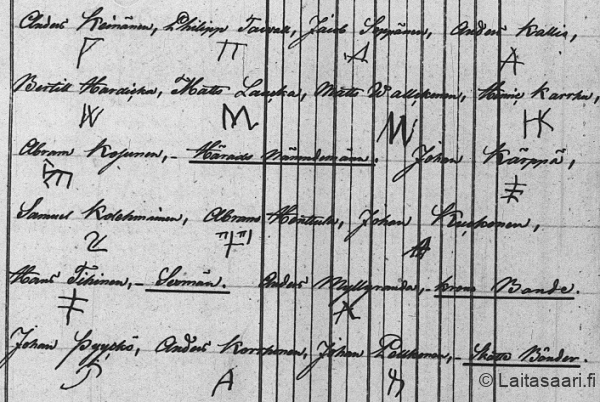 Anders Keinänen, Philipp Tawast, Jacob Seppänen, Anders Kallis,
Bertill Hardicka, Matts Laucka, Matts Wallckunen, Karrka,
Abram Kojonen, – Härads Nämndemän. Johan Kärppä,
Samuel Kolehmainen, Abram Hentula, Johan
Hans Tihinen, – Sexmän. Anders Myllyranda, – krono Bonde.
Johan Pyyckö, Anders Korhonen, Johan – Skatte Bönder.
© Laitasaari.fi